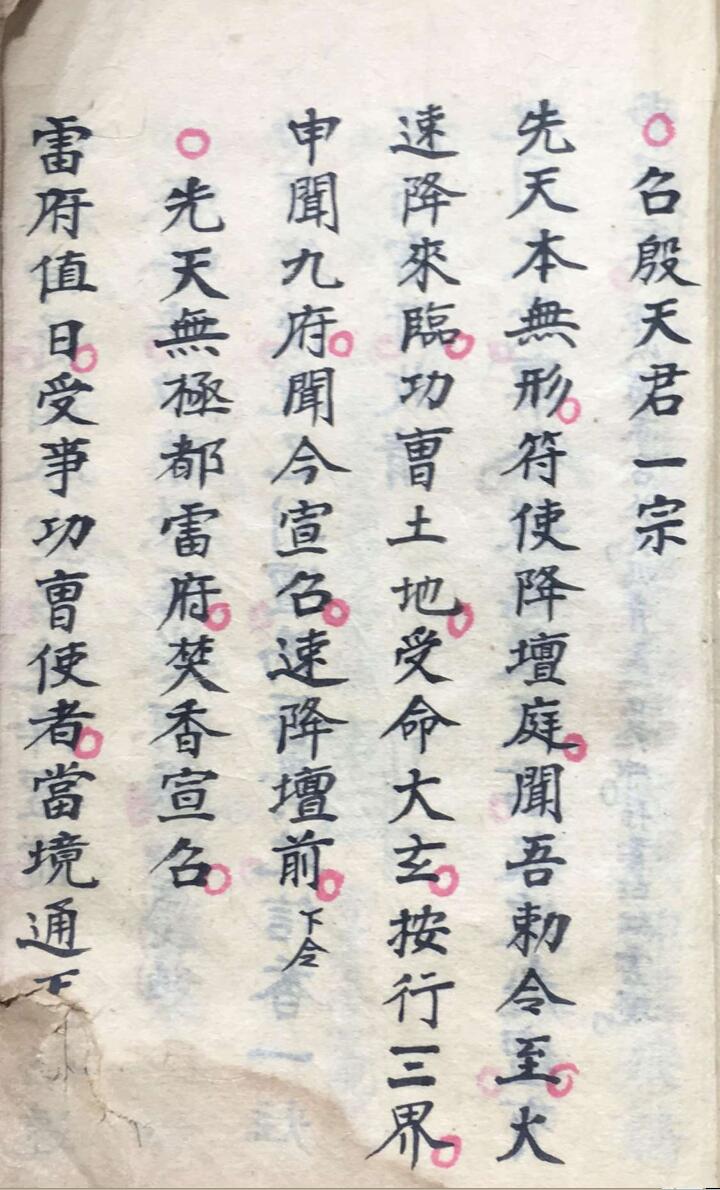 ○召殷天君一宗
先天本無形○符使降壇庭○聞吾勅令至○大
速降來臨○功曹土地○受命大玄○按行三界○
申聞九府○聞今宣召○速降壇前○下令
○先天無極都雷府○焚香宣召○
雷府值日○受事功曹使者○當境通